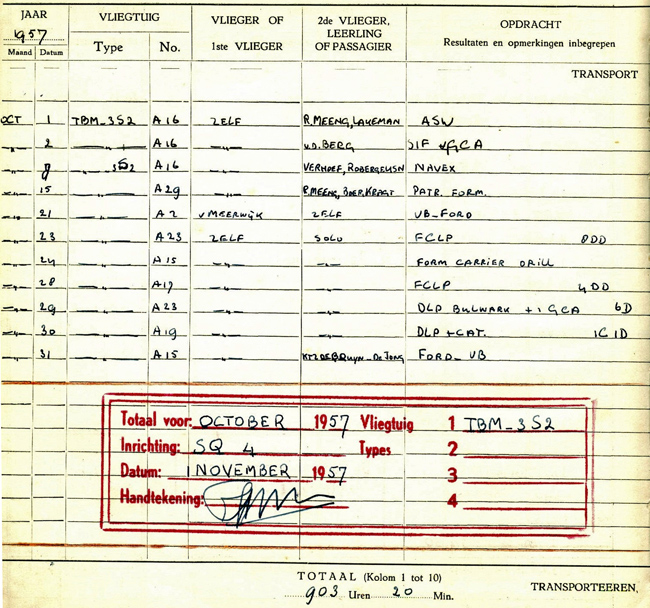 JAAR VLIEGTUIG VLIEGER OF 2de VLIEGER, OPDRACHT
1957 1ste VLIEGER LEERLING Resultaten en opmerkingen inbegrepen
Maand Datum Type No. OF PASSAGIER
TRANSPORT
OCT 1 TBM_3S2 A16 ZELF P. MEENG, LAKEMAN ASW
—„— 2 —„— A16 —„— v.d. BERG SIF + GCA
—„— 8 3S2 A16 —„— VERHOEF, NAVEX
—„— 15 —„— A29 —„— P. MEENG, BOER, KRAGT PATR. FORM.
—„— 21 —„— A2 v MEERWIJK ZELF VB_FORD
—„— 23 —„— A23 ZELF SOLO FCLP 8DD
—„— 24 —„— A15 —„— —„— FORM CARRIER DRILL
—„— 28 —„— A17 —„— —„— FCLP 4DD
—„— 29 —„— A23 —„— —„— DLP BULWARK + 1 GCA 6D
—„— 30 —„— A19 —„— —„— DLP + CAT. 1C 1D
—„— 31 —„— A15 —„— DE BRUYN_De JONG FORD_VB
Totaal voor: OCTOBER 1957 Vliegtuig 1 TBM_3S2
Inrichting: SQ 4 Types 2
Datum: 1 NOVEMBER 1957 3
Handtekening: 4
TOTAAL (Kolom 1 tot 10)
903 Uren 20 Min. TRANSPORTEEREN.